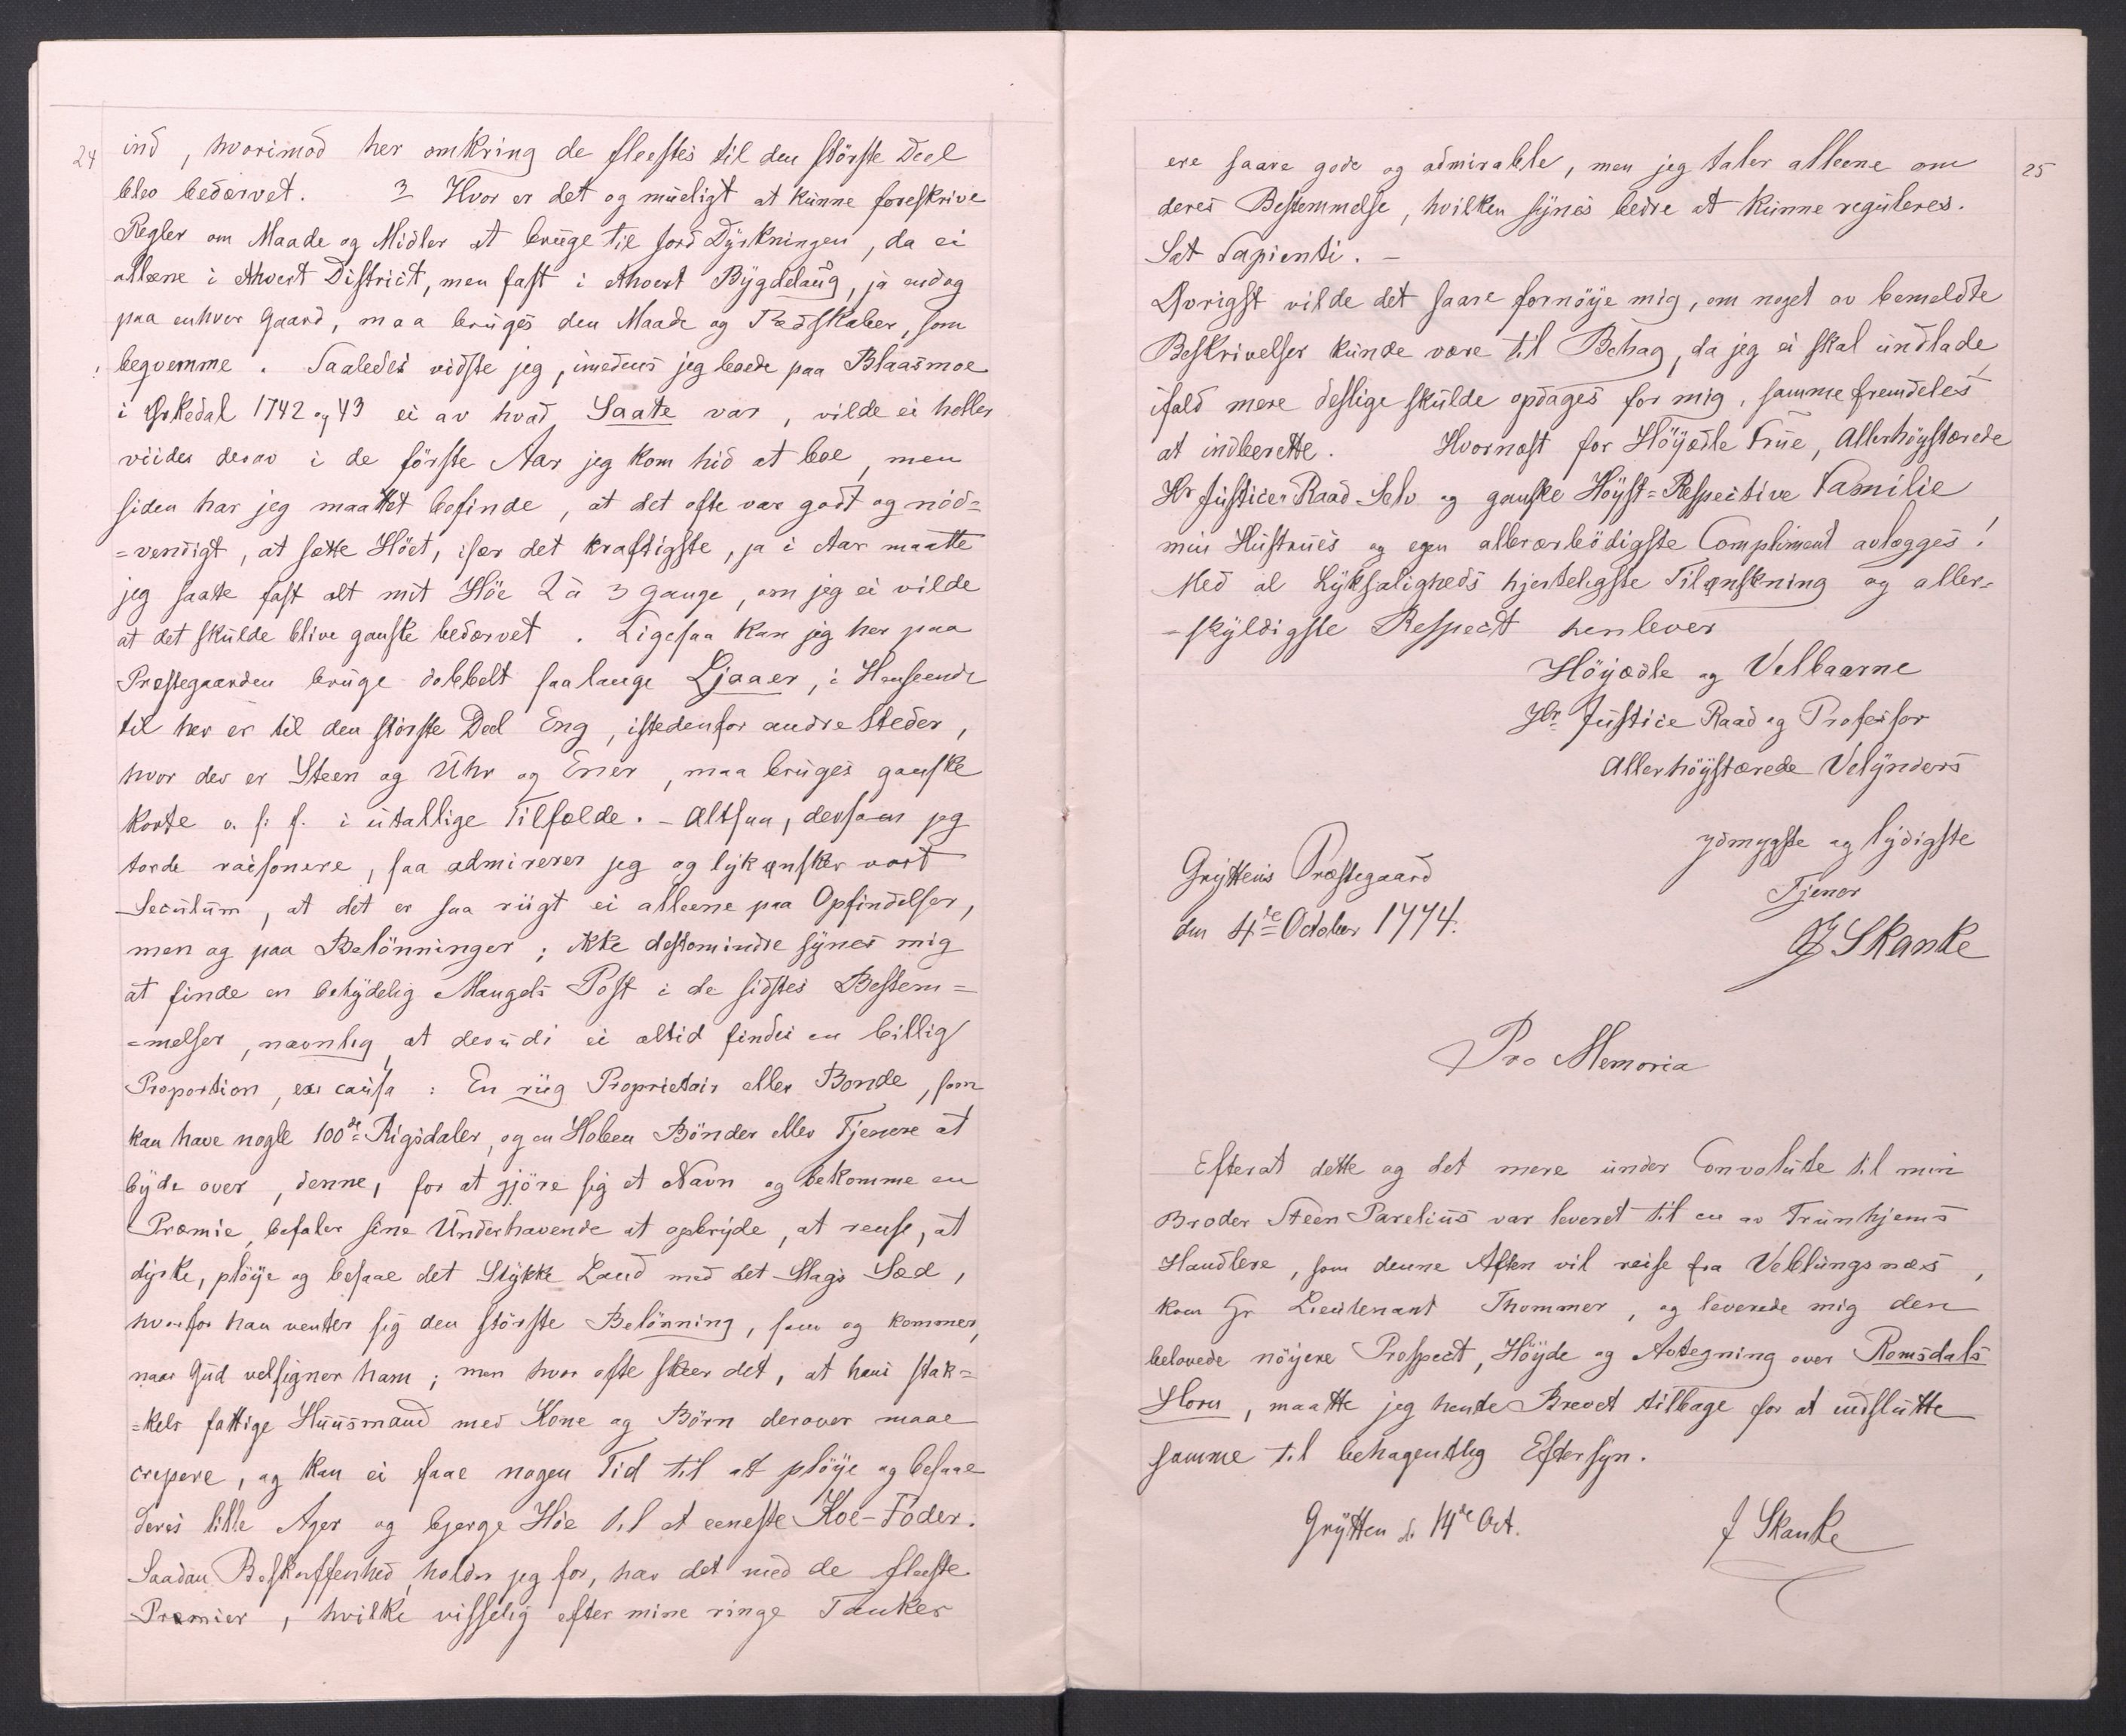 24
ind, hvorimod her omkring de fleestes til den störste Deel
blev bedærvet. 3 Hvor er det og mueligt at kunne foreskrive
Regler om Maade og Midler at bruge til Jord Dyrkningen, da ei
alleene i ethvert District, men fast i ethvert Bygdelaug, ja endog
paa enhver Gaard, maa bruges den Maade og Redskaber, som
beqvemme. Saaledes vidste jeg, imedens jeg boede paa Blaasmoe
i Orkedal 1742 og 43 ei av hvad Saate var, vilde ei heller
viide derav i de förste Aar jeg kom hid at boe, men
siden har jeg maattet befinde, at det ofte var godt og nöd=
=vendigt, at sætte Höet, især det kraftigste, ja i Aar maatte
jeg saate fast alt mit Höe 2 à 3 gange, om jeg ei vilde
at det skulde blive ganske bedærvet. Ligesaa kan jeg her paa
Præstegaarden bruge dobbelt saa lange Ljaaer, i Henseende
til her er til den störste Deel Eng, istedenfor andre Steder,
hvor der er Steen og Uhr og Ener, maa bruges ganske
korte o. s: f. i utallige Tilfælde. - Altsaa, dersom jeg
torde raisonere, saa admirerer jeg og lykønsker vort
Seculum, at det er saa riigt ei alleene paa Opfindelser,
men og paa Belönninger; ikke destomindre synes mig
at finde en betydelig Mangels Post i de sidstes Bestem=
=melser, navnlig at derudi ei altid findes en billig
Proportion, ex causa: En riig Proprietair eller Bonde, som
kan have nogle 100de Rigsdaler, og en Hoben Bönder eller Tjenere at
byde over, denne, for at gjöre sig et Navn og bekomme en
Præmie, befaler sine Underhavende at opbryde, at rense, at
dyrke, plöye og besaae det Stykke Land med det Slags Sæd,
hvorfor han venter sig den störste Belönning, som og kommer,
naar Gud velsigner ham; men hvor ofte skeer det, at hans stak=
=kels fattige Huusmand med Kone og Börn derover maae
crepere, og kan ei faae nogen Tid til at plöye og besaae
deres lille Ager og bjerge Höe til et eeneste Koe-Foder.
Saadan Beskaffenhed, holder jeg for, har det med de fleeste
Præmier, hvilke visselig efter mine ringe Tanker
25
ere saare gode og admirable, men jeg taler alleene om
deres Bestemmelse, hvilken synes bedre at kunne reguleres.
Sat Sapienti. -
Övrigst vilde det saare fornöye mig, om noget av bemeldte
Beskrivelser kunde være til Behag, da jeg ei skal undlade,
ifald mere deslige skulde opdages for mig, samme fremdeles
at indberette. Hvornæst for Höyædle Frue, Allerhöystærede
Hr Justice Raad Selv og ganske Höyst=Respective Familie
min Hustrues og egen allerærbödigste Compliment avlægges!
Med al Lyksaligheds hjerteligste Tilønskning og aller=
=skyldigste Respect henlever
Höyædle og Velbaarne
Hr Justice Raad og Professor
Allerhöystærede Velynders
ydmygste og lydigste
Tjener
J Skanke
Gryttens Præstegaard
den 4de October 1774.
Pro Memoria
Efterat dette og det mere under Convolute til min
Broder Steen Parelius var leveret til en av Trunhjems
Handlere, som denne Aften vil reise fra Veblungsnæs,
kom Hr Lieutenant Thommer, og leverede mig den
belovede nöyere Prospect, Höyde og Avtegning over Romsdals
Horn, maatte jeg hente Brevet tilbage for at indslutte
samme til behagentlig Eftersyn.
Grytten d. 14de Oct.
J Skanke